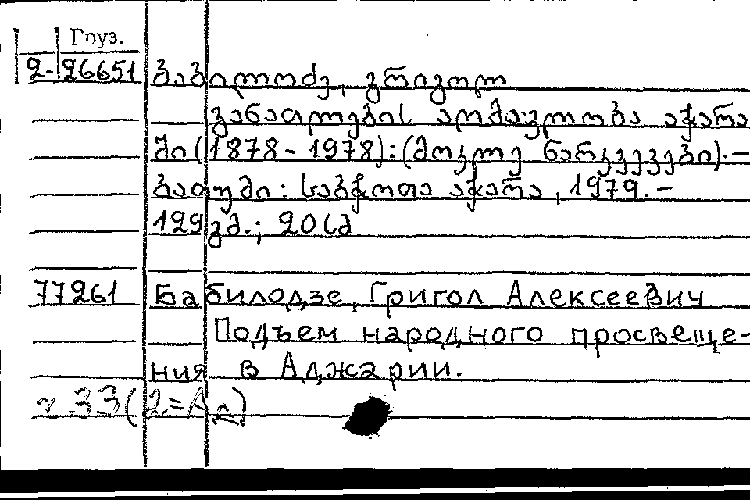 Груз.
2-26651 ბაბილოძე, გრიგოლ
განათლების აღმავლობა აჭარა
ში (1878-1978): (მოკლე ნარკვევები).—
ბათუმი: საბჭოთა აჭარა, 1979.—
129 გვ.; 20 სმ
77261 Бабилодзе, Григол Алексеевич
Подъем народного просвеще-
ния в Аджарии.
33(2=